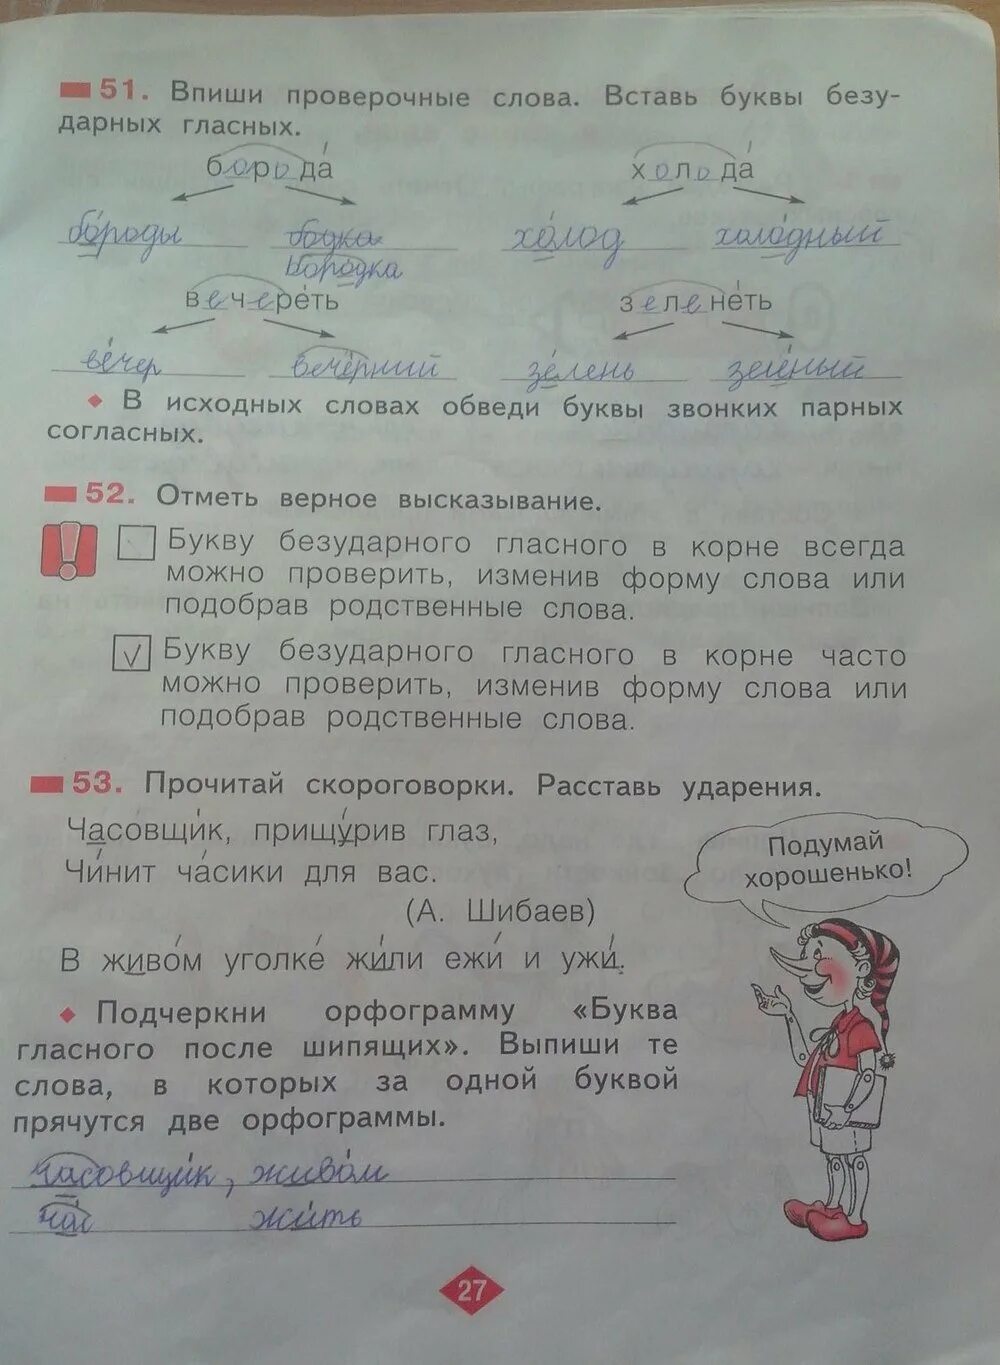 51. Впиши проверочные слова. Вставь буквы безу-
дарных гласных.
борода́ холода́
бо́роды бодка хо́лод холо́дный
бородка
вечере́ть зелене́ть
ве́чер вече́рний зе́лень зелёный
В исходных словах обведи буквы звонких парных
согласных.
52. Отметь верное высказывание.
Букву безударного гласного в корне всегда
можно проверить, изменив форму слова или
подобрав родственные слова.
√ Букву безударного гласного в корне часто
можно проверить, изменив форму слова или
подобрав родственные слова.
53. Прочитай скороговорки. Расставь ударения.
Часовщи́к, прищу́рив глаз,
Чи́нит ча́сики для вас.
(А. Шибаев)
Подумай
хорошенько!
В живо́м уголке́ жи́ли ежи́ и ужи́.
Подчеркни орфограмму «Буква
гласного после шипящих». Выпиши те
слова, в которых за одной буквой
прячутся две орфограммы.
Часовщи́к, живо́м
ча́с жи́ть
27